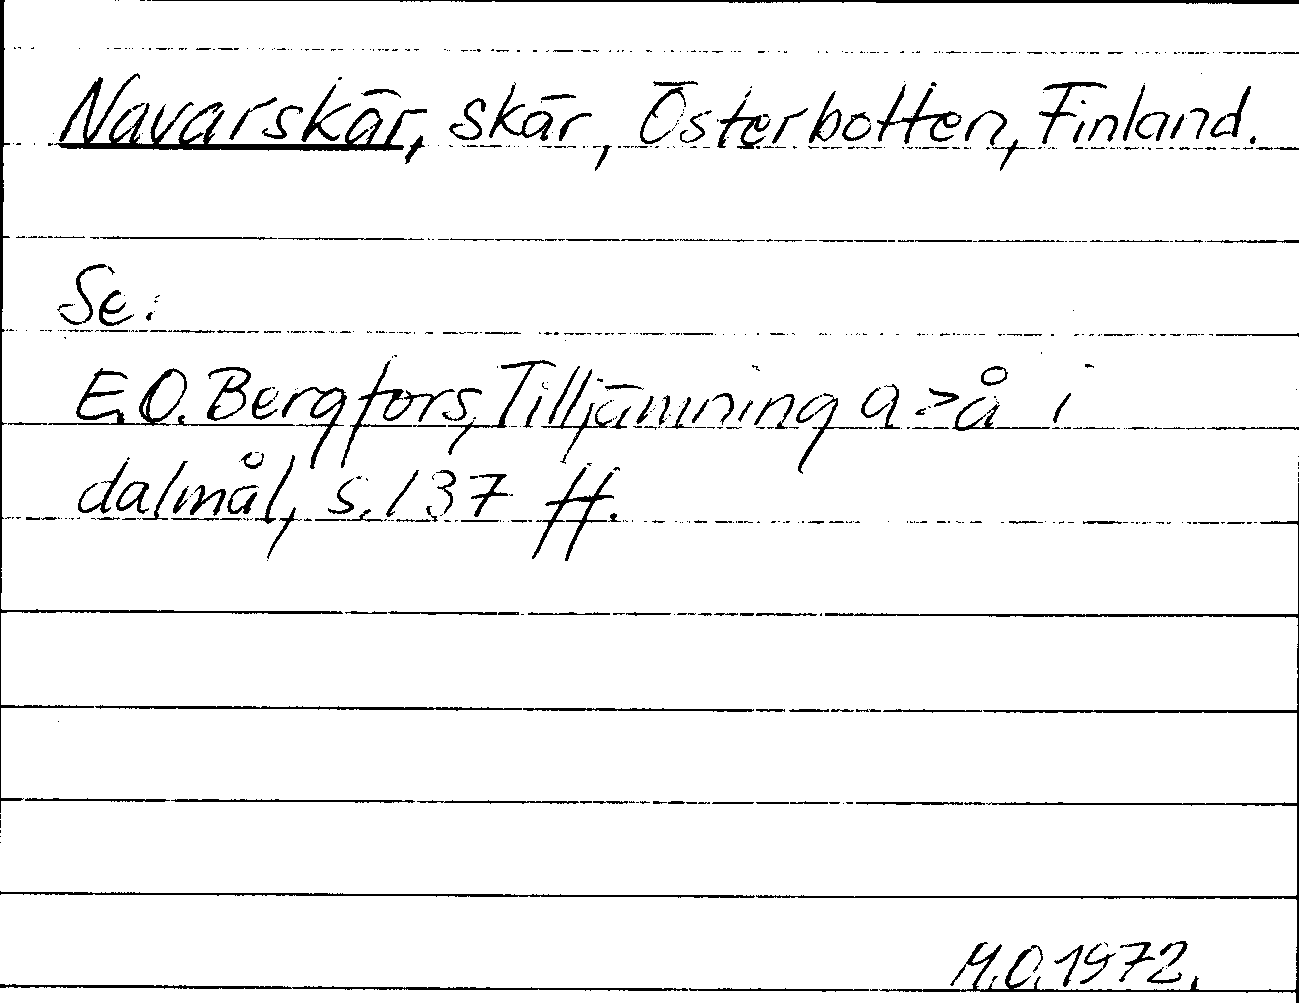 Navarskär, skär, Österbotten, Finland.
Se:
E.O. Bergfors, Tilljämning a > å i
dalmål, s. 137 ff.
M.O. 1972.